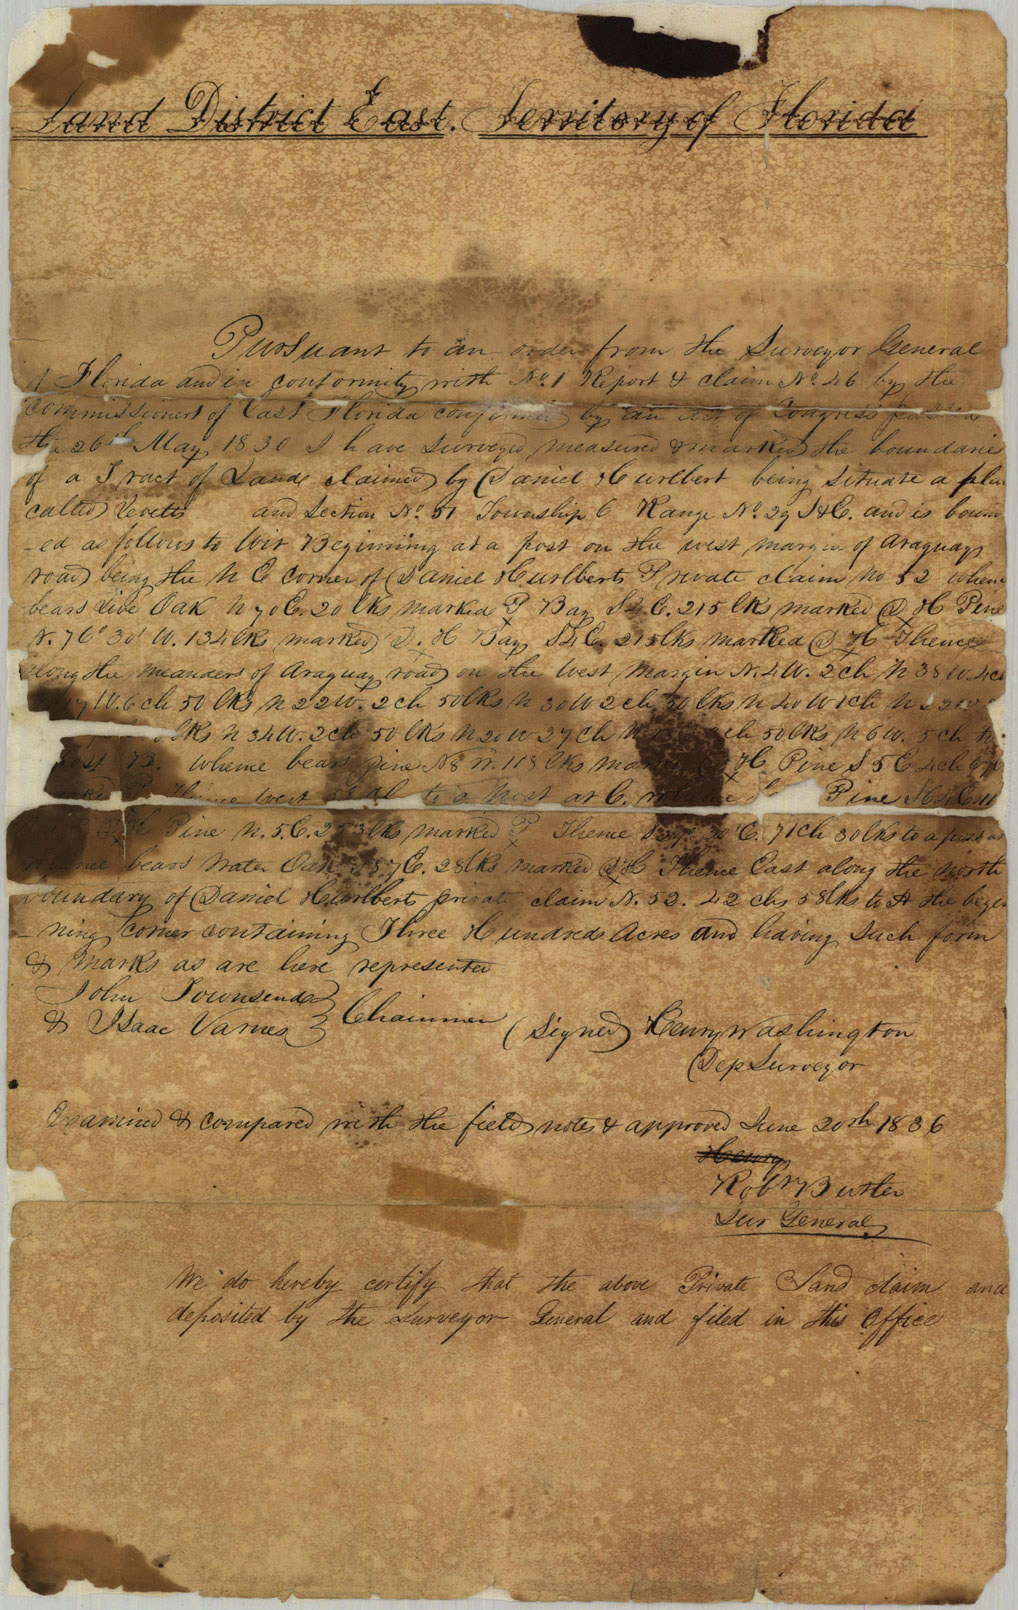 Land District East. Territory of Florida
Pursuant to an order from the Surveyor General
of Florida and in conformity with No. 1 Report & claim No. 46 by the
commissioners of East Florida confirmed by an Act of Congress passed
the 26th May 1830 I have surveyed measured & marked the boundarie
of a Tract of Land claimed by Daniel Hurlbert being situate a place
called and Section No. 51 Township 6 Range No. 29 S&E. and is boun
-ed as follows to Wit Beginning at a post on the west margin of Araquay
road being the N E corner of Daniel Hurlberts Private claim No 52 whence
bears Live Oak N 70 E. 20 lks marked P X Bay S 4 E. 215 lks marked D X H Pine
N. 76° 30' W. 134 lks marked D. X H Bay S 4 E. 215 lks marked D X H Thence
along the meanders of Araquay road on the West margin N. 4 W. 2 ch N 38 W. 4 c
W. 6 ch 50 lks N 22 W. 2 ch 50 lks N 30 W 2 ch 50 lks N 40 W 1 ch N
lks N 34 W. 2 ch 50 lks N 20 W 27 ch N ch 50 lks N 6 W. 5 ch
B. whence bears pine N 8 W. 113 lks marked H Pine S 5 E
Thence West to a Post at C. whence Pine
Pine N. 5. E. 253 lks marked P Thence E. 71 ch 30 lks to a post at
whence bears Water Oak 87 E. 28 lks marked D X H Thence East along the north
boundary of Daniel Hurlberts private claim N. 52. 42 chs 58 lks to A the begin
-ning corner containing Three Hundred Acres and having Such form
& marks as are here represented
John Townsend
& Isaac Varnes } Chainmen (Signed) Henry Washington
Dep Surveyor
Examined & compared with the field notes & approved June 20th 1836
Henry
Robt Butler
Sur General
We do hereby certify that the above Private Land claim and
deposited by the Surveyor General and filed in this Office